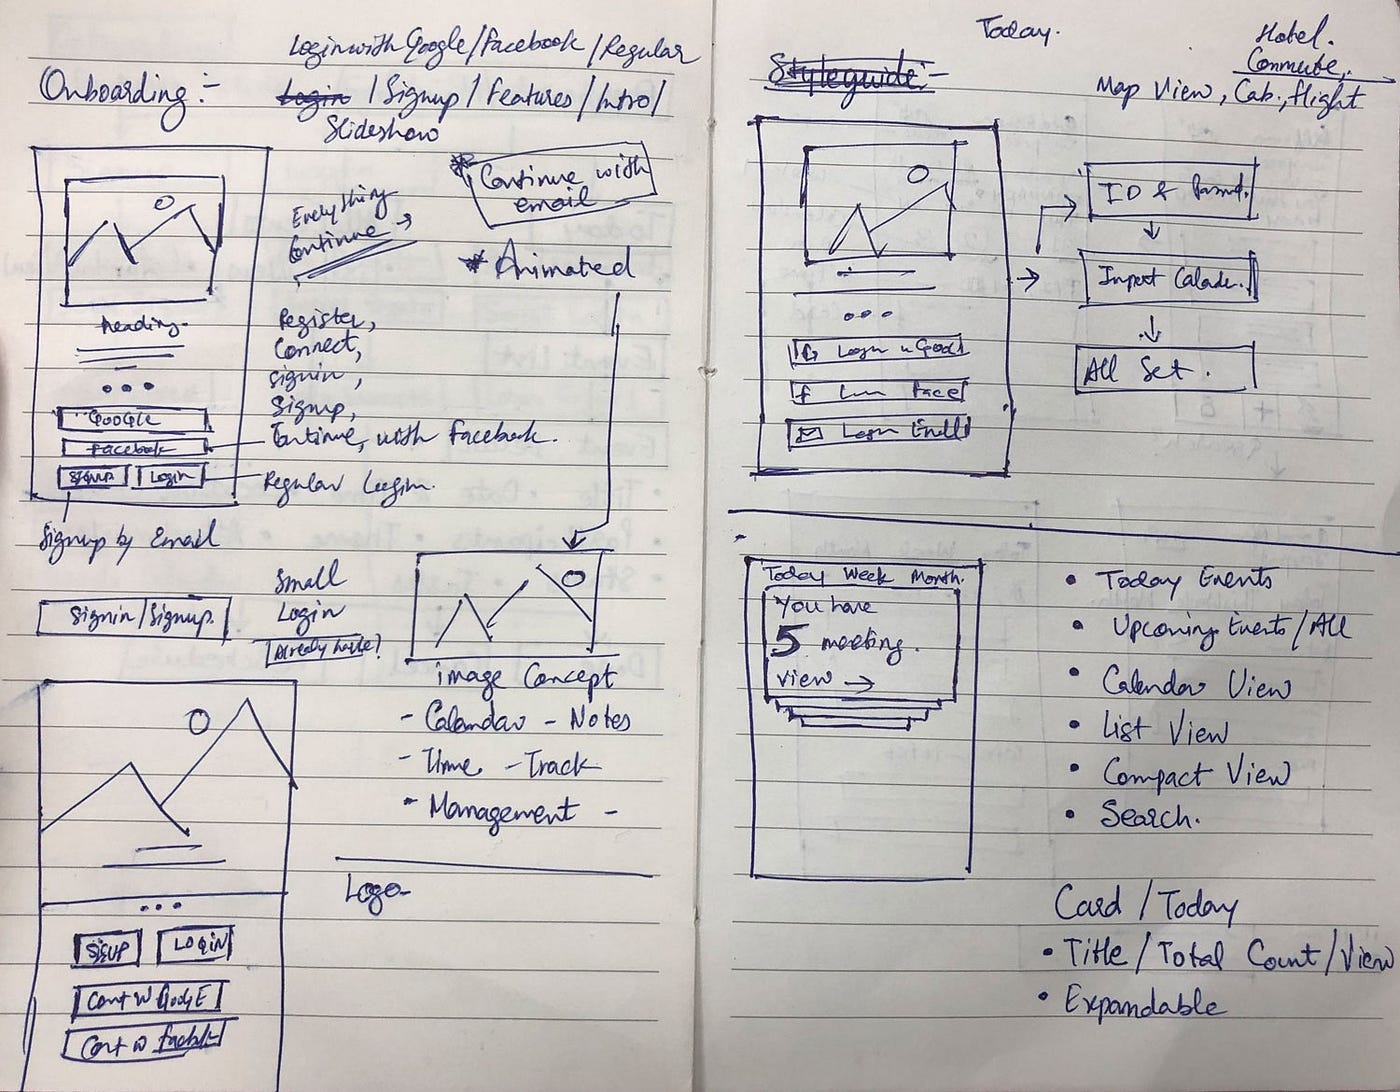 Login with Google/Facebook/Regular
Onboarding :-
Login / Signup / Features / Intro /
Slideshow
Everything
Continue →
* Continue with
email
* Animated
heading.
GOOGLE
facebook
Signup Login
Register,
Connect,
signin,
Signup,
Continue, with Facebook.
Regular Login.
Signup by Email
Signin/Signup.
Small
Login
Already have?
image Concept
- Calendar - Notes
- Time - Track
- Management -
Logo-
SIGUP LOGIN
Cont W GooglE
Cont w facebk
Today.
Hotel.
Commute,
Styleguide :-
Map View, Cab., flight
G Login w Goo
f Face
Login Email
ID &
Import
All Set.
Today Week Month.
You have
5 meeting.
view →
• Today Events
• Upcoming Events/All
• Calendar View
• List View
• Compact View
• Search.
Card / Today
• Title / Total Count / View
• Expandable